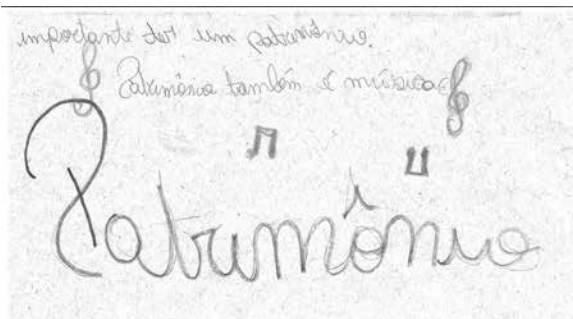 importante ter um patrimônio.
Patrimônio também é música
Patrimônio